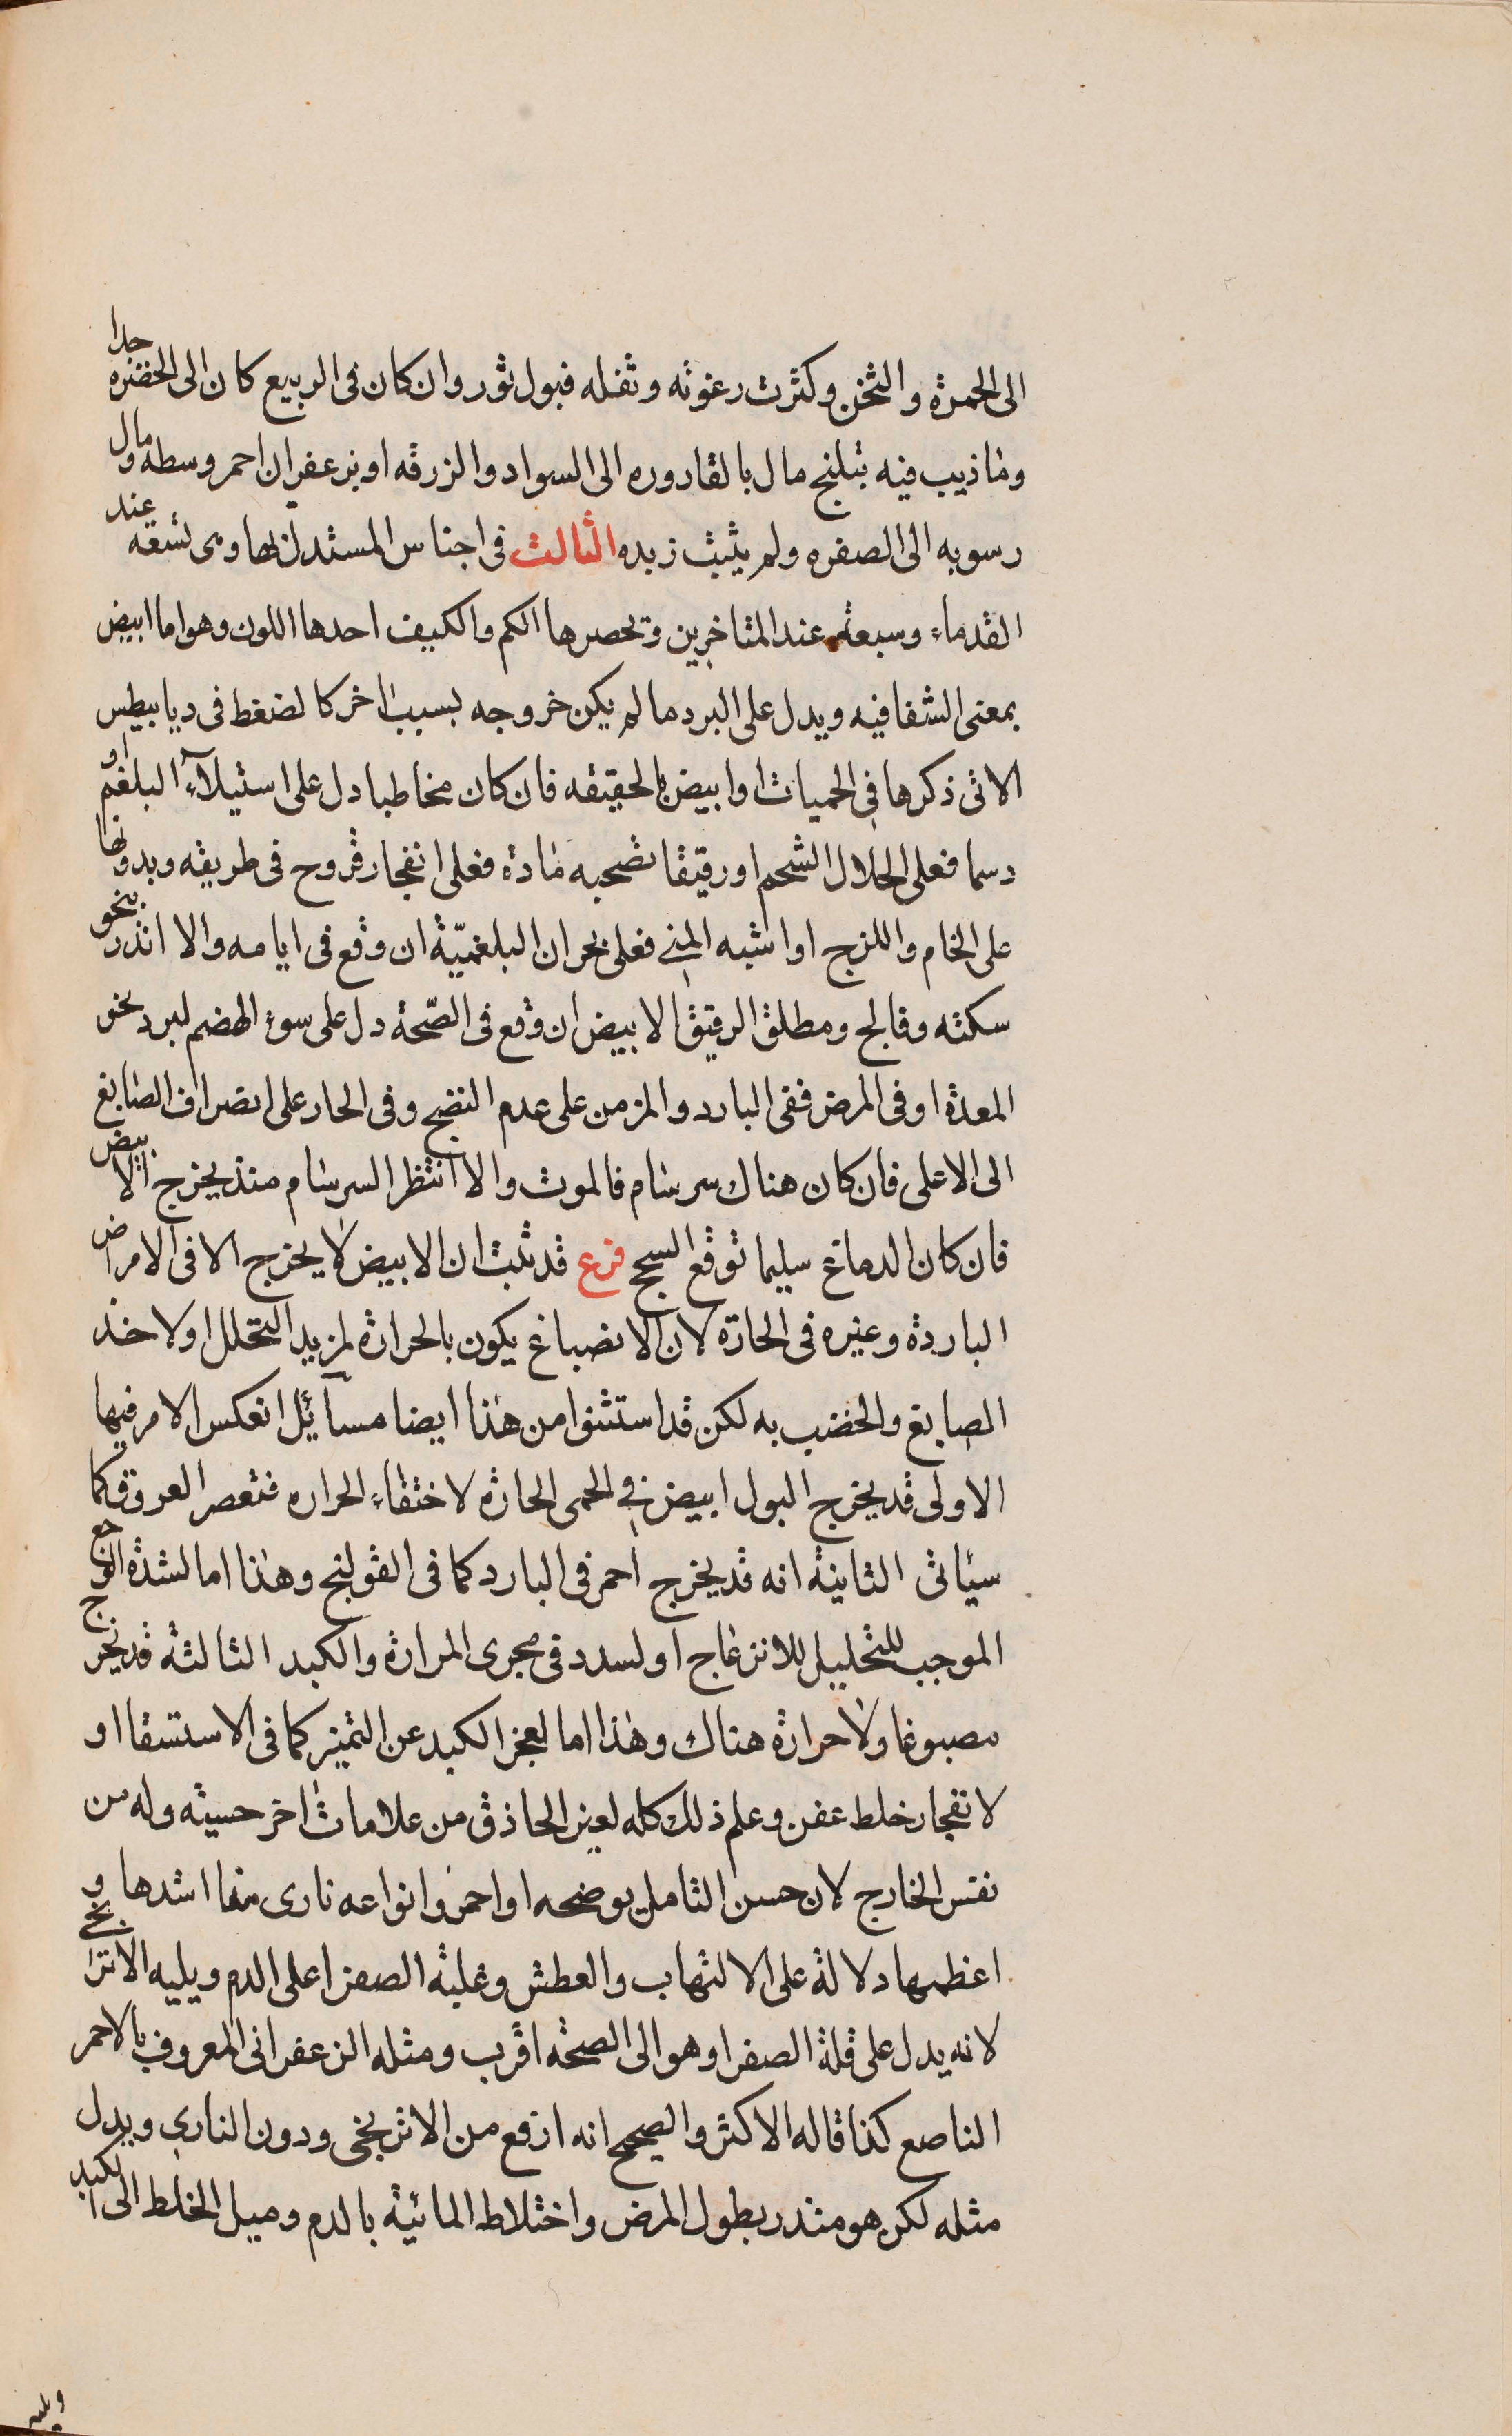 الى الحمرة والثخن وكثرت رغوته وثفله فبول ثور وان كان فى الربيع كان الى الخضره جدا
وما ذيب فيه نيلنج مال بالقاروره الى السواد والزرقه او بزعفران احمر وسطه ومال
رسوبه الى الصفره ولم يثبت زبده الثالث فى اجناس المستدل بها وهى تسعه عند
القدماء وسبعة عند المتاخرين وتحصرها الكم والكيف احدها اللون وهو اما ابيض
بمعنى الشفافيه ويدل على البرد ما لم يكن خروجه بسبب اخر كالضغط فى ديابيطس
الاتى ذكرها فى الحميات او ابيض بالحقيقه فان كان مخاطيا دل على استيلآء البلغم او
دسما فعلى انحلال الشحم او رقيقا تصحبه مادة فعلى انفجار قروح فى طريقه وبدونها
على الخام واللزج او اشبه المنى فعلى بحران البلغميّة ان وقع فى ايامه والا انذر بنحو
سكته وفالج ومطلق الرقيق الابيض ان وقع فى الصّحة دل على سوء الهضم لبرد نحو
المعدة او فى المرض ففى البارد والمزمن على عدم النضج وفى الحار على انصراف الصابغ
الى الاعلى فان كان هناك سرسام فالموت والا انتظر السرسام منذ يخرج الابيض
فان كان الدماغ سليما توقع السحج فرع قد ثبت ان الابيض لا يخرج الا فى الامراض
الباردة وغيره فى الحارة لان الانصباغ يكون بالحرارة لمزيد التحلل او لاخذ
الصابغ والخضب به لكن قد استثنوا من هذا ايضا مسآئل انعكس الامر فيها
الاولى قد يخرج البول ابيض فى الحمى الحارة لاختفاء الحراره فتعصر العروق وكما
سيأتى الثانية انه قد يخرج احمر فى البارد كما فى القولنج وهذا اما لشدة الوجع
الموجب للتحليل للانزعاج او لسدد فى مجرى المرارة والكبد الثالثة قد يخرج
مصبوغا ولا حرارة هناك وهذا اما لعجز الكبد عن التميز كما فى الاستسقا او
لانفجار خلط عفن وعلم ذلك كله لغير الحاذق من علامات اخر حسيته وله من
نفس الخارج لان حسن التامل يوضحه او احمر وانواعه نارى منها اشدها و
اعظمها دلالة على الالتهاب والعطش وغلبة الصفرا على الدم ويليه الاترنجى
لانه يدل على قلة الصفرا وهو الى الصحة اقرب ومثله الزعفرانى المعروف بالاحمر
الناصع كذا قاله الاكثر والصحيح انه ارفع من الاترنجى ودون النارى ويدل
مثله لكن هو منذر بطول المرض واختلاط المائية بالدم وميل الخلط الى الكبد
ويليه